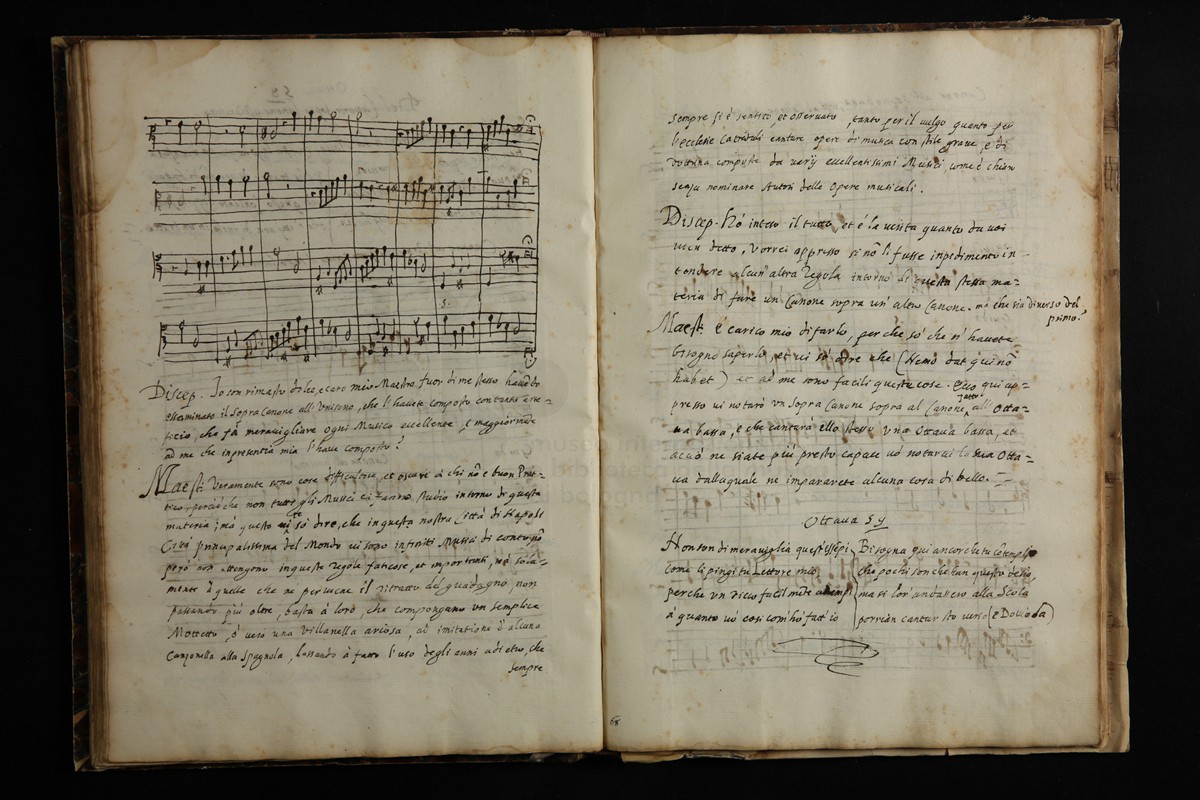 Discep. Io son rimasto dolce, e caro mio Maestro, fuor di me stesso havendo
essaminato il sopra Canone all'Unisono, che l'havete composto con tanto arte=
ficio, che fà meravigliare ogni Musico eccellente, e maggiormente
ad me che in presentia mia l'have composto?
Maest: Veramente sono cose difficultose, et oscure à chi nõ è buon Prat=
tico, perciò che non tutti gli Musici ci fanno studio intorno di questa
materia; mà questo vi sò dire, che in questa nostra Città di Napoli
Città principalissima del Mondo vi sono infiniti Musici di
però non attengono in queste regole faticose, et importanti, mà sola=
mente à quelle che ne perviene il ritratto del guadagno, non
passando più oltre, basta à loro, che compongano un semplice
Mottetto, ò vero una Villanella ariosa, ad imitatione d'alcuna
Canzonella alla Spagnola, lassando à fatto l'uso degli anni adietro, che
sempre
sempre si è sentito, et osservato tanto per il vulgo quanto per
l'eccelesie Cattedrali cantare opere di musica con stile grave, e di
dottrina composte da varij eccellentissimi Musici, come è chiaro
senza nominare Autori delle Opere musicali.
Discep. Hò inteso il tutto, et è la verità quanto da voi
vien detto, Vorrei appresso si nõ li fusse inpedimento in=
tendere alcun'altra Regola intorno di questa stessa ma=
teria di fare un Canone sopra un'altro Canone. mà che sia diverso del
primo?
Maest: È carico mio di farlo, perche sò che n'havete
bisogno saperlo, et vi sò dire che (Nemo dat qui nõ
habet) et ad me sono facili queste cose. Ecco qui ap=
presso vi notarò un sopra Canone sopra al Canone fatto all'Otta=
va bassa, e che cantarà ello stesso una Ottava bassa, et
acciò ne siate più presto capace vò notarvi la sua Otta=
va dalla quale ne impararete alcuna cosa di bello.
Ottava 59
Non son di meraviglia quest'essepi
Come li pingi tu Lettore mio
perche un ricco facilmente
à quanto vò così com'hò fatt'io
Bisogna qui ancor che tu contempli
che pochi son che han questo desio,
ma si lor' andassero alla Scola
porrian cantar sto verso (e Dovò da)
68